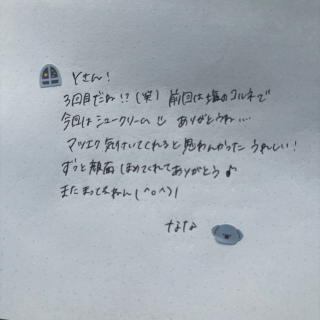 Yさん!
3回目だね!?(笑) 前回は塩のコルネで
今回はシュークリーム ありがとうね...
マツエク気付いてくれると思わんかった うれしい!
ずっと顔面ほめてくれてありがとう♪
またまってるねん(^o^)/
なな